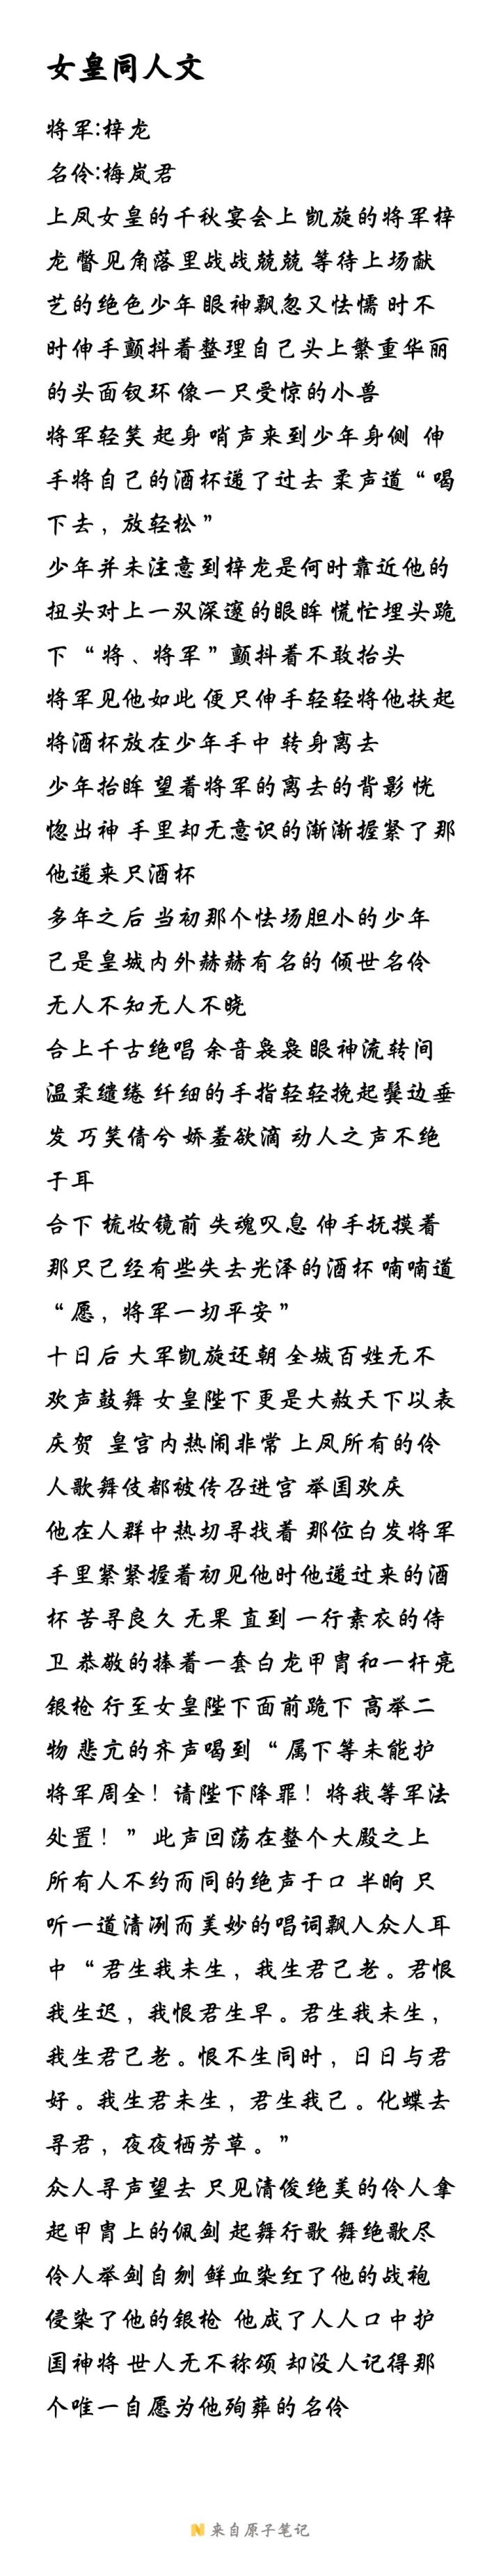 女皇同人文
将军:梓龙
名伶:梅岚君
上凤女皇的千秋宴会上 凯旋的将军梓
龙 瞥见角落里战战兢兢 等待上场献
艺的绝色少年 眼神飘忽又怯懦 时不
时伸手颤抖着整理自己头上繁重华丽
的头面钗环 像一只受惊的小兽
将军轻笑 起身 哨声来到少年身侧  伸
手将自己的酒杯递了过去 柔声道“喝
下去，放轻松”
少年并未注意到梓龙是何时靠近他的
扭头对上一双深邃的眼眸 慌忙埋头跪
下 “将、将军”颤抖着不敢抬头
将军见他如此 便只伸手轻轻将他扶起
将酒杯放在少年手中 转身离去
少年抬眸 望着将军的离去的背影 恍
惚出神 手里却无意识的渐渐握紧了那
他递来只酒杯
多年之后 当初那个怯场胆小的少年
己是皇城内外赫赫有名的 倾世名伶
无人不知无人不晓
合上千古绝唱 余音袅袅 眼神流转间
温柔缱绻 纤细的手指轻轻挽起鬓边垂
发 巧笑倩兮 娇羞欲滴 动人之声不绝
于耳
合下 梳妆镜前 失魂叹息 伸手抚摸着
那只己经有些失去光泽的酒杯 喃喃道
“愿，将军一切平安”
十日后 大军凯旋还朝 全城百姓无不
欢声鼓舞 女皇陛下更是大赦天下以表
庆贺  皇宫内热闹非常 上凤所有的伶
人歌舞伎都被传召进宫 举国欢庆
他在人群中热切寻找着 那位白发将军
手里紧紧握着初见他时他递过来的酒
杯 苦寻良久 无果 直到 一行素衣的侍
卫 恭敬的捧着一套白龙甲胄和一杆亮
银枪 行至女皇陛下面前跪下 高举二
物 悲亢的齐声喝到 “属下等未能护
将军周全！请陛下降罪！将我等军法
处置！” 此声回荡在整个大殿之上
所有人不约而同的绝声于口 半晌 只
听一道清冽而美妙的唱词飘入众人耳
中 “君生我未生，我生君己老。君恨
我生迟，我恨君生早。君生我未生，
我生君己老。恨不生同时，日日与君
好。我生君未生，君生我己。化蝶去
寻君，夜夜栖芳草。”
众人寻声望去 只见清俊绝美的伶人拿
起甲胄上的佩剑 起舞行歌 舞绝歌尽
伶人举剑自刎 鲜血染红了他的战袍
侵染了他的银枪  他成了人人口中护
国神将 世人无不称颂 却没人记得那
个唯一自愿为他殉葬的名伶
来自原子笔记